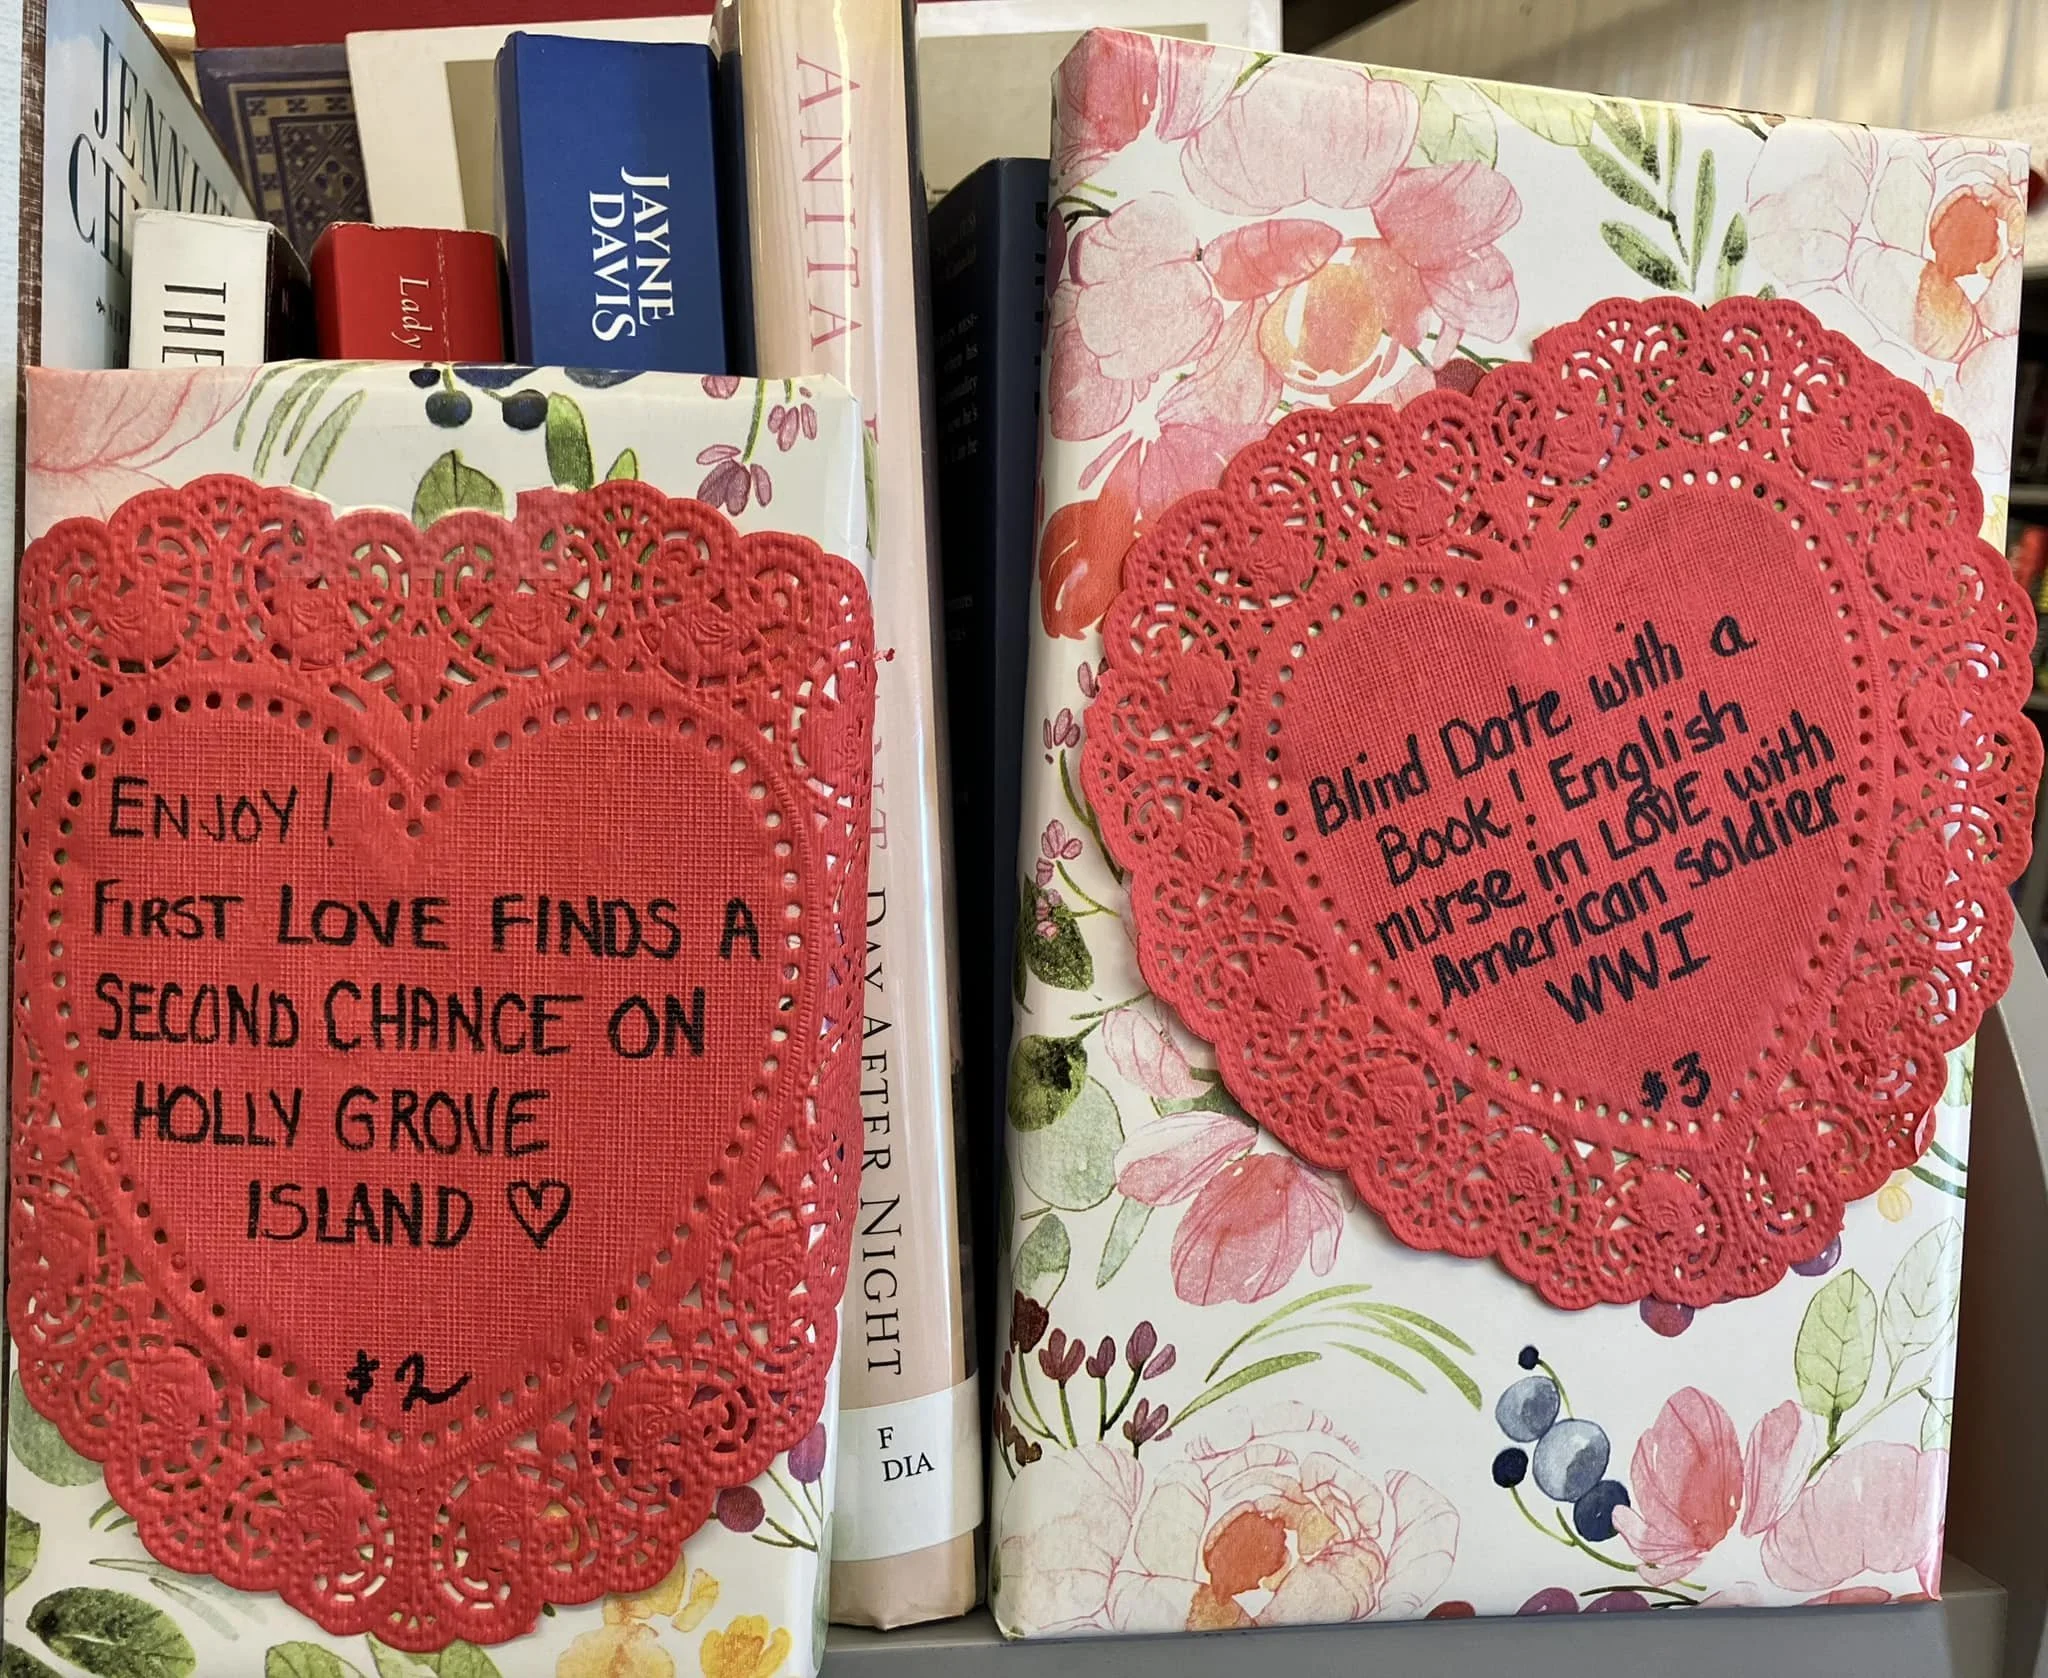 JENNIFER
THE
Lady
JAYNE
DAVIS
ANITA
DAY AFTER NIGHT
F
DIA
ENJOY!
FIRST LOVE FINDS A
SECOND CHANCE ON
HOLLY GROVE
ISLAND ♡
$2
Blind Date with a
Book! English
nurse in LOVE with
American soldier
WWI
$3